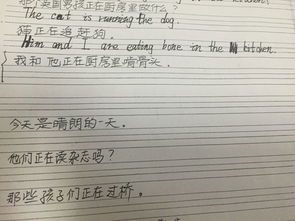 美国男孩正在厨房里做什么？
The cat is running the dog.
猫正在追赶狗。
Him and I are eating bone in the kitchen.
我和他正在厨房里啃骨头。
今天是晴朗的一天。
他们正在读杂志吗？
那些孩子们正在过桥。